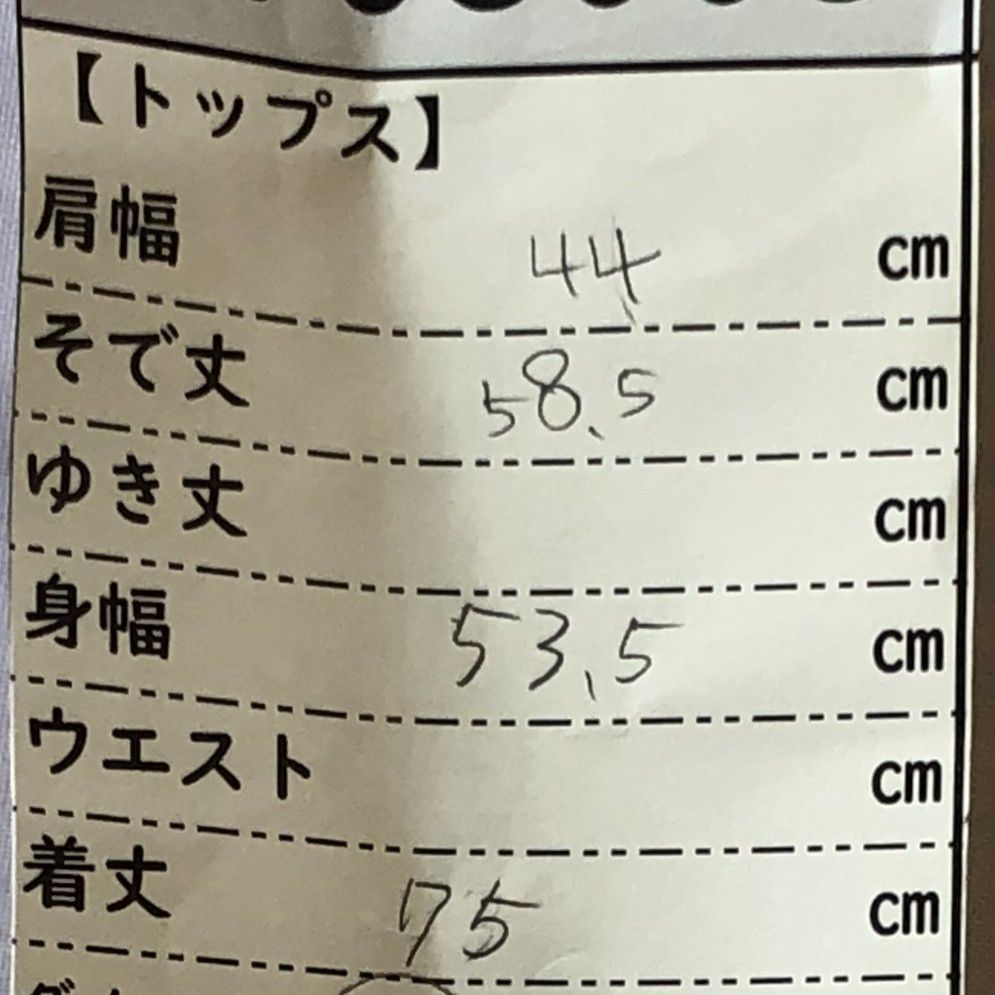 【トップス】
肩幅 44 cm
そで丈 58.5 cm
ゆき丈 cm
身幅 53.5 cm
ウエスト cm
着丈 75 cm